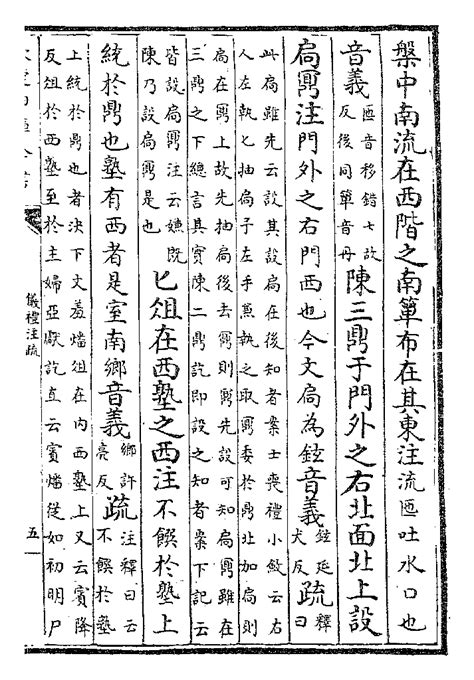 槃中南流在西階之南簞布在其東注流匜吐水口也
音義匜音移錯七故
反後同簞音丹
陳三鼎于門外之右北面北上設
扃鼏注門外之右門西也今文扃為鉉音義鉉延
犬反
疏釋
曰
此扃雖先云設其設扃在後知者案士喪禮小斂云右
人左執匕抽扃于左手兼執之取鼏委於鼎北加扃則
扃在鼏上故先抽扃後去鼏則鼏先設可知扃鼏雖在
三鼎之下總言其實陳二鼎訖即設之知者案下記云
皆設扃鼏注云嫌既
陳乃設扃鼏是也
匕俎在西塾之西注不饌於塾上
統於鼎也塾有西者是室南鄉音義鄉許
亮反
疏注釋曰云
不饌於塾
上統於鼎也者決下文羞燔俎在內西塾上又云賓降
反俎於西塾至於主婦亞獻訖直云賓燔從如初明尸
儀禮注疏
五